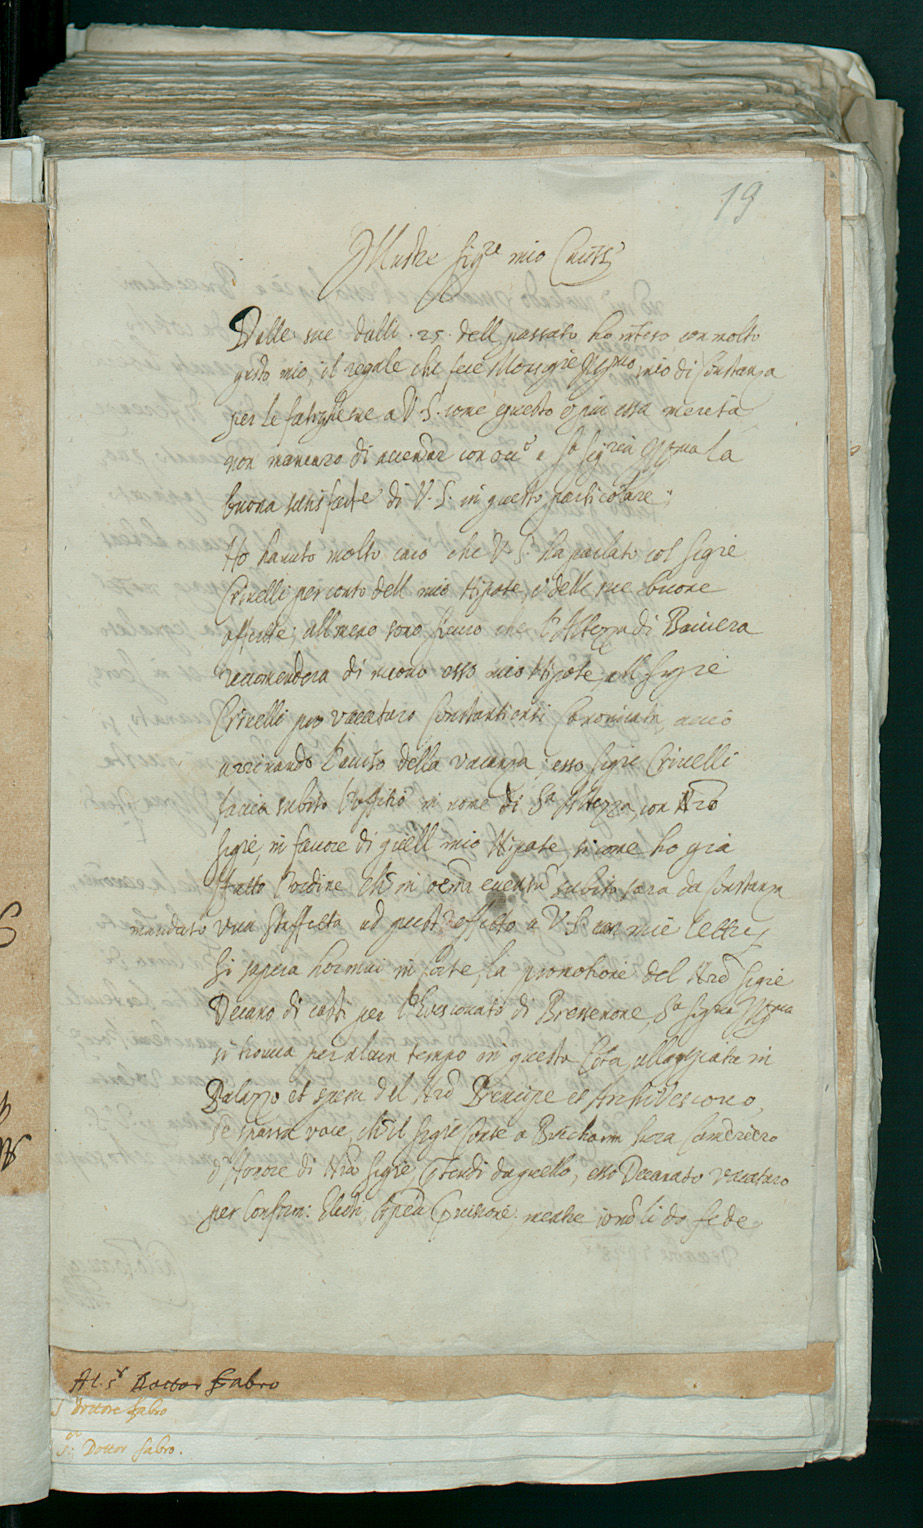 19
Illustre Sigre mio
Dalle sue dalli .25. dell passato ho inteso con molto
gusto mio, il regale che fece Monsgre mio di Constanza
per le fatighe sue a V.S. come questo e piu essa merita
non mancaro di accender con a Sa la
buona satisfatte di V.S. in questo particolare.
Ho havuto molto caro che V.S. ha parlato col Sigre
Crivelli per conto dell mio Nipote, e delle sue buone
offerte; allmeno sono sicuro che l'Altezza di Baviera
raccomendera di nuovo esso mio Nipote all Sigre
Crivelli pro vacaturo Constantiensi Canonicatu, accio
arrivando l'aviso della vacanza, esso Sigre Crivelli
faccia subito l'offitio in nome di Sa Altezza con Nro
Sigre, in favore di quell mio Nipote, si come ho gia
fatto l'ordine che in subito sara da Constanza
mandato una Staffetta ad quest'effetto a V.S. con mie lettere
Si sapera hormai in Corte, la promotione del Sigre
Decano di costi per l'Evesconato di Bressenone, Sa
si trova per alcun tempo in questa Cita, allogiata in
Palazzo et spesa del Principe et Archivescovo,
se sparsa voce, che il Sigre Conte a Buechaim sara Cameriero
d'honore di Nro Sigre, et esso Decanato vacaturo
per mentre io no li do fede.
Al. Sr Dottor Fabro
S Dottore Fabro
Sr: Dottor fabro.